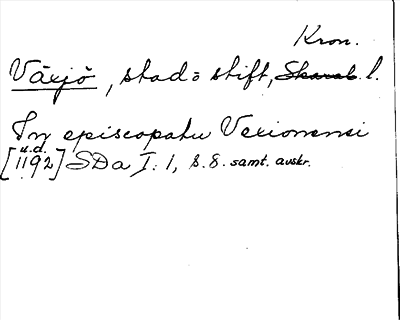 Kron.
Växjö, stad o stift, Skarab. l.
In episcopatu Vexionensi
u.d.
[1192] SDa I: 1, s. 8. samt. avskr.